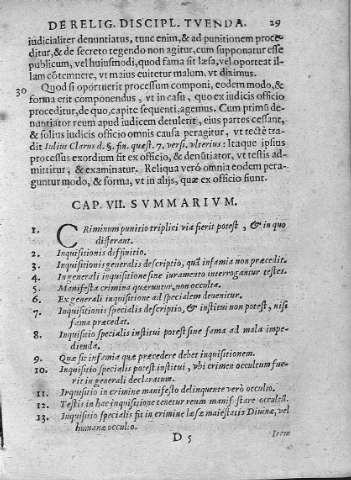 DE RELIG. DISCIPL. TVENDA. 29
iudicialiter denuntiatus, tunc enim, & ad punitionem proce-
ditur, & de secreto tegendo non agitur, cum supponatur esse
publicum, vel huiusmodi, quod fama sit læsa, vel oporteat il-
lam cōtemnere, vt maius euitetur malum, vt diximus.
30 Quod si oportuerit processum componi, eodem modo, &
forma erit componendus, vt in casu, quo ex iudicis officio
proceditur, de quo, capite sequenti agemus. Cum primū de-
nuntiator reum apud iudicem detulerit, eius partes cessant,
& solius iudicis officio omnis causa peragitur, vt rectè tra-
dit Iulius Clarus d. §. fin. quæst. 7. versi. vlterius: Itaque ipsius
processus exordium fit ex officio, & denūtiator, vt testis ad-
mittitur, & examinatur. Reliqua verò omnia eodem pera-
guntur modo, & forma, vt in alijs, quæ ex officio fiunt.
CAP. VII. SVMMARIVM.
1. CRiminum punitio triplici via fieri potest, & in quo
differant.
2. Inquisitionis diffinitio.
3. Inquisitionis generalis descriptio, quā infamia non præcedit.
4. In generali inquisitione sine iuramento interrogantur testes.
5. Manifesta crimina quæruntur, non occulta.
6. Ex generali inquisitione ad specialem deuenitur.
7. Inquisitionis specialis descriptio, & institui non potest, nisi
fama præcedat.
8. Inquisitio specialis institui potest sine fama ad mala impe-
dienda.
9. Quæ sit infamia quæ præcedere debet inquisitionem.
10. Inquisitio specialis potest institui, vbi crimen occultum fue-
rit in generali declaratum.
11. Inquisitio in crimine manifesto delinquente verò occulto.
12. Testis in hac inquisitione tenetur reum manifestare occultū.
13. Inquisitio specialis fit in crimine læsæ maiestatis Diuinæ, vel
humanæ occulto.
D 5 Item